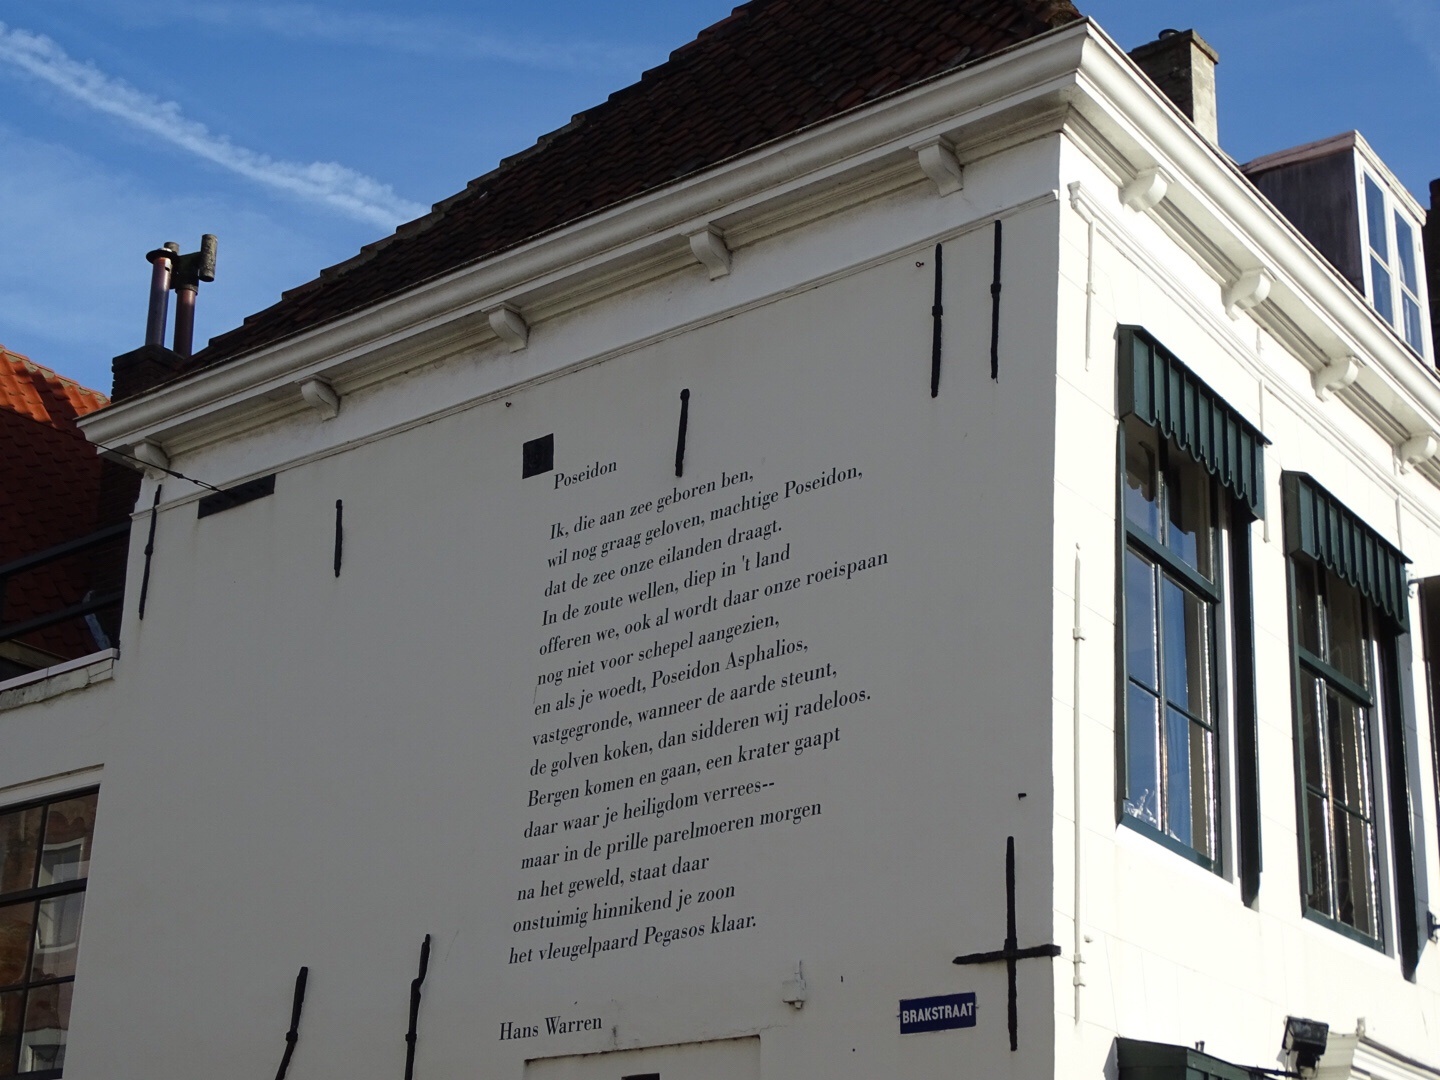 Poseidon
Ik, die aan zee geboren ben,
wil nog graag geloven, machtige Poseidon,
dat de zee onze eilanden draagt.
In de zoute wellen, diep in 't land
offeren we, ook al wordt daar onze roeispaan
nog niet voor schepel aangezien,
en als je woedt, Poseidon Asphalios,
vastgegronde, wanneer de aarde steunt,
de golven koken, dan sidderen wij radeloos.
Bergen komen en gaan, een krater gaapt
daar waar je heiligdom verrees--
maar in de prille parelmoeren morgen
na het geweld, staat daar
onstuimig hinnikend je zoon
het vleugelpaard Pegasos klaar.
Hans Warren
BRAKSTRAAT